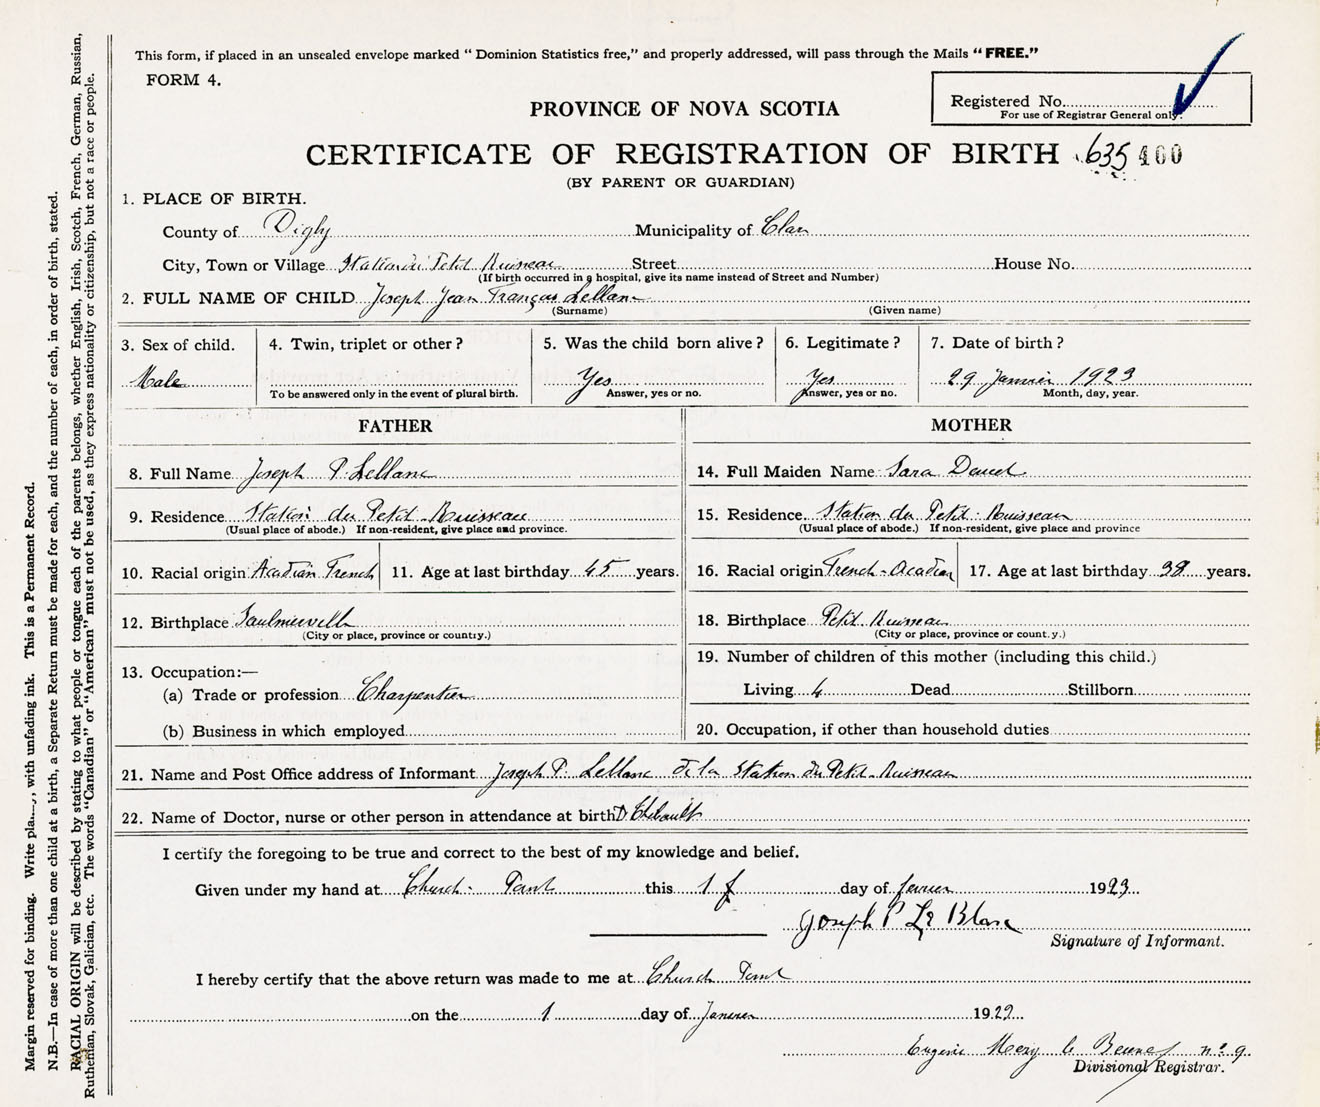 This form, if placed in an unsealed envelope marked “ Dominion Statistics free,” and properly addressed, will pass through the Mails “ FREE.”
FORM 4.
Registered No.
For use of Registrar General only.
PROVINCE OF NOVA SCOTIA
CERTIFICATE OF REGISTRATION OF BIRTH 635 400
(BY PARENT OR GUARDIAN)
1. PLACE OF BIRTH.
County of Digby Municipality of Clare
City, Town or Village Station du Petit Ruisseau Street House No.
(If birth occurred in a hospital, give its name instead of Street and Number)
2. FULL NAME OF CHILD Joseph Jean François LeBlanc
(Surname) (Given name)
3. Sex of child. 4. Twin, triplet or other? 5. Was the child born alive? 6. Legitimate? 7. Date of birth?
Male Yes Yes 29 Janvier 1923
To be answered only in the event of plural birth. Answer, yes or no. Answer, yes or no. Month, day, year.
FATHER MOTHER
8. Full Name Joseph P. LeBlanc 14. Full Maiden Name Sara
9. Residence Station du Petit Ruisseau 15. Residence Station du Petit-Ruisseau
(Usual place of abode.) If non-resident, give place and province. (Usual place of abode.) If non-resident, give place and province
10. Racial origin Acadian French 11. Age at last birthday 45 years. 16. Racial origin French-Acadian 17. Age at last birthday 38 years.
12. Birthplace Saulnierville 18. Birthplace Petit Ruisseau
(City or place, province or country.) (City or place, province or count.y.)
19. Number of children of this mother (including this child.)
13. Occupation:—
(a) Trade or profession Charpentier Living 4 Dead Stillborn
(b) Business in which employed 20. Occupation, if other than household duties
21. Name and Post Office address of Informant Joseph P. LeBlanc de la Station du Petit-Ruisseau
22. Name of Doctor, nurse or other person in attendance at birth D Thibault
I certify the foregoing to be true and correct to the best of my knowledge and belief.
Given under my hand at Church-Point this 1 day of fevrier 1923
Joseph P Le Blanc
Signature of Informant.
I hereby certify that the above return was made to me at Church Point
on the 1 day of 192
Eugene le n° 9.
Divisional Registrar.
Margin reserved for binding. Write pla...., with unfading ink. This is a Permanent Record.
N.B.—In case of more than one child at a birth, a Separate Return must be made for each, and the number of each, in order of birth, stated.
RACIAL ORIGIN will be described by stating to what people or tongue each of the parents belongs, whether English, Irish, Scotch, French, German, Russian,
Ruthenian, Slovak, Galician, etc. The words “Canadian” or “American” must not be used, as they express nationality or citizenship, but not a race or people.